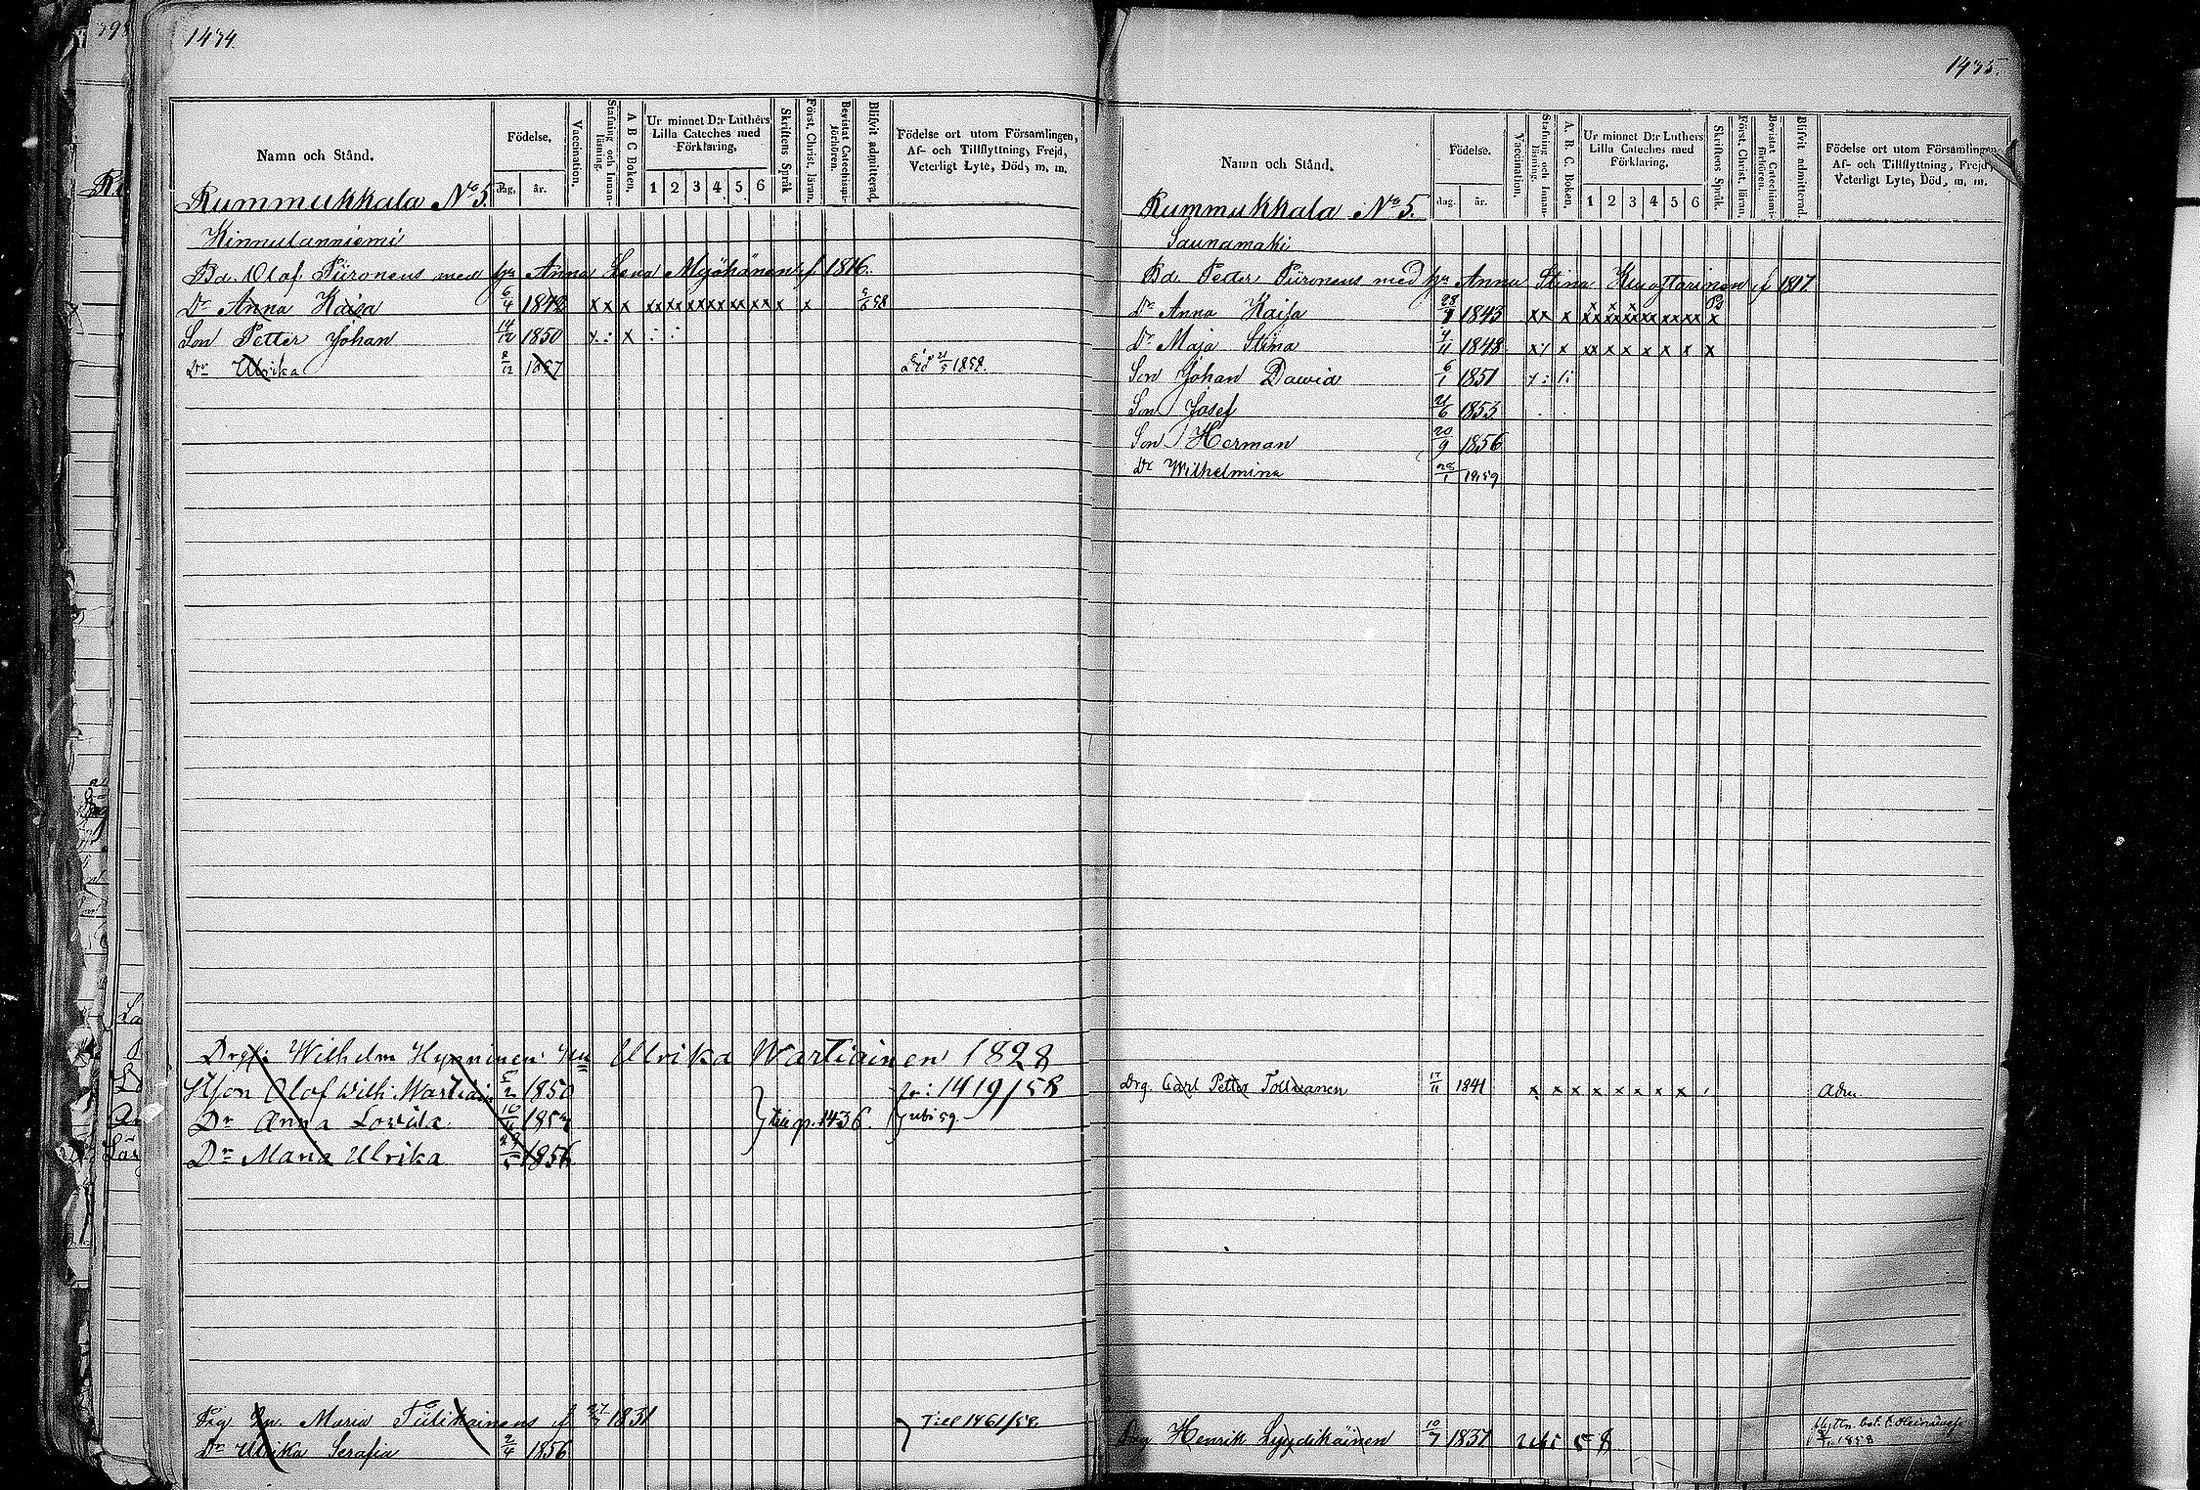 1434.
Namn och Stånd.
Födelse.
dag. år.
Vaccination.
Stafning och Innanläsning.
A B C Boken.
Ur minnet D:r Luthers Lilla Cateches med Förklaring.
1 2 3 4 5 6
Skriftens Språk
Först. Christ. läran.
Bevistat Catechismi-förhören.
Blifvit admitterad.
Födelse ort utom Församlingen, Af- och Tillflyttning, Frejd, Veterligt Lyte, Död, m. m.
Rummukkala No 5.
Kinnulanniemi
Bd. Olaf Piironens med hu Anna Lena Myöhänen f 1816.
Dr Anna Kaisa 6/4 1842 x x x xx xx xx xx xx xx x x 58
Son Petter Johan 14/12 1850 x : x : :
Dr Ulrika 8/12 1857 Död 21/5 1858.
Drg: Wilhelm Hynninen: hu Ulrika Wartiainen 1828
Olof Wilh: Wartiain 5/2 1850 fr: 1419/58
Dr Anna Lovisa 10/11 1852 p. 1436. ubi 59.
Dr Maria Ulrika 29/5 1856
Maria Tiilikainens f 27 1831 Till 1461/58
Dr Ulrika Serafia 2/4 1856
1435.
Namn och Stånd.
Födelse.
dag. år.
Vaccination.
Stafning och Innanläsning.
A. B. C. Boken.
Ur minnet D:r Luthers Lilla Cateches med Förklaring.
1 2 3 4 5 6
Skriftens Språk.
Först. Christ. läran.
Bevistat Catechismi-förhören.
Blifvit admitterad.
Födelse ort utom Församlingen, Af- och Tillflyttning, Frejd, Veterligt Lyte, Död, m. m.
Rummukkala No 5.
Saunamäki
Bd. Petter Piironens med hu Anna Stina f 1817
Dr Anna Kaisa 1843 xx x xx xx xx xx xx xx x
Dr Maja Stina 1848 x x xx x x x x x x
Son Johan Dawid 6/1 1851
Son Josef 21/6 1853
Son Herman 20/9 1856
Dr Wilhelmina 28/1 1859
Drg. Carl Petter Tolwanen 17/11 1841 x x x x x x x x Adm.
Drg Henrik Lyydikäinen 10/7 1837 Ubi 58 1858